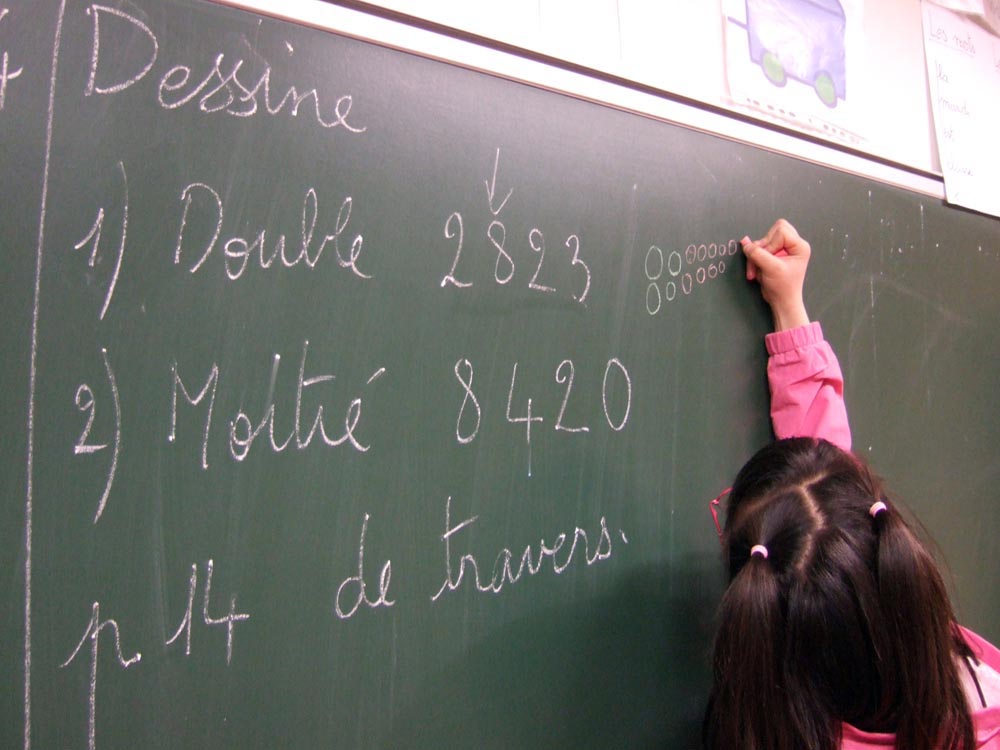 Dessine
1) Double 2823
2) Moitié 8420
p 14 de travers.
Les mots
la
est